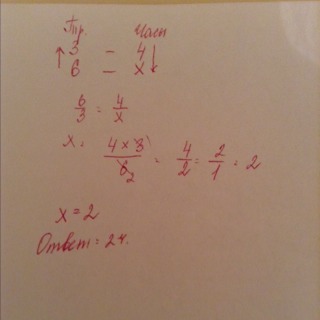 Тр. Часы
↑ 3 – 4 ↓
6 – x
6/3 = 4/x
x = 4 × 3 / 6 2 = 4/2 = 2/1 = 2
x = 2
Ответ = 2 ч.